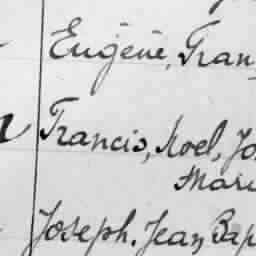 Eugène, Fran
Francis, Noel, Jo
Mari
Joseph, Jean Bap